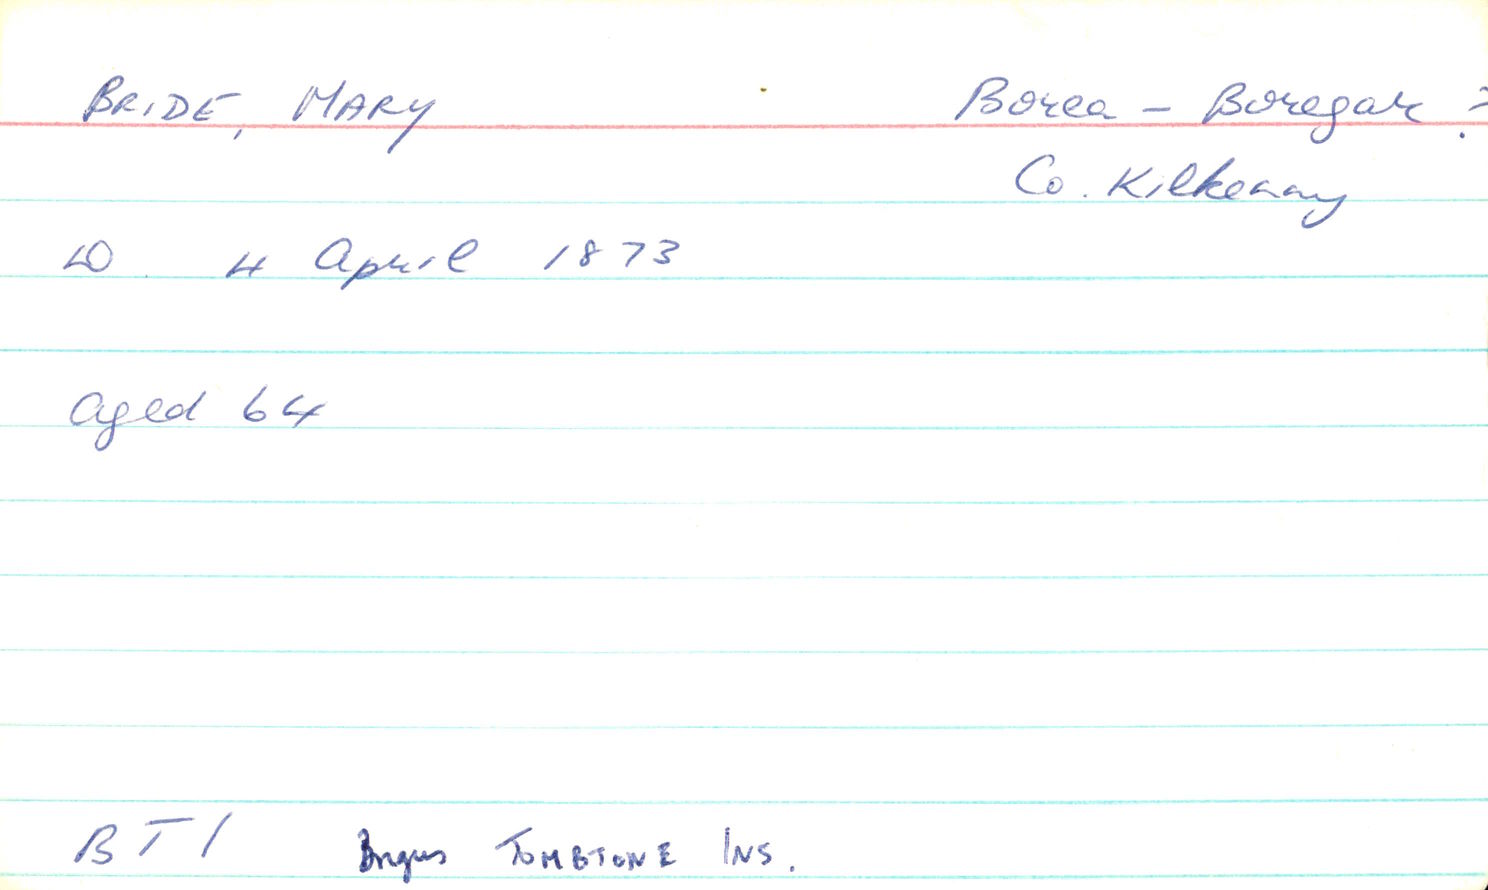 BRIDE, MARY Borea – Boregar ?
Co. Kilkenny
D. 4 April 1873
aged 64
BTI Brigus TOMBTONE INS.